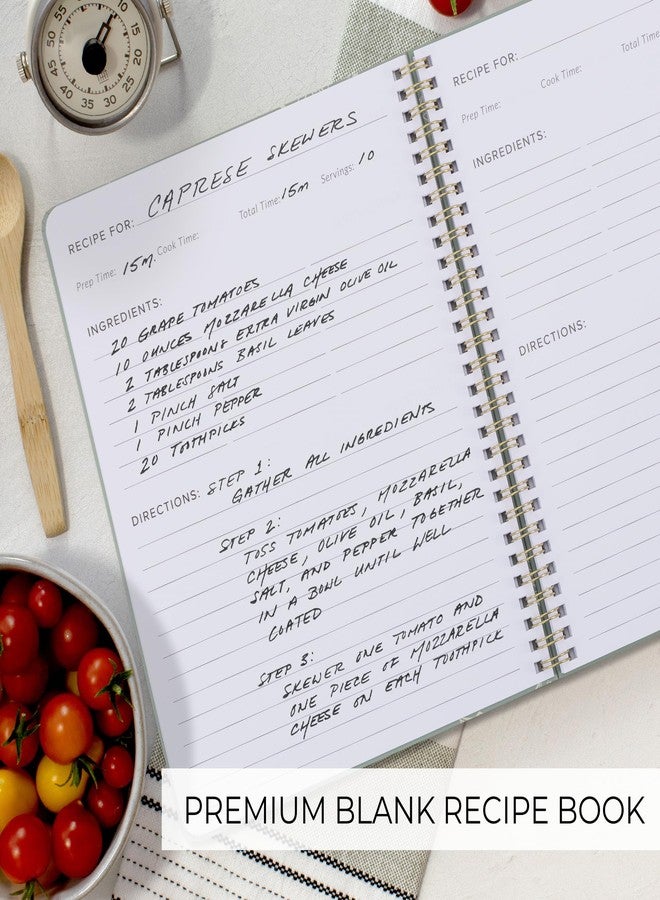 55
10
50
15
45
20
40
25
35
30
RECIPE FOR: CAPRESE SKEWERS
Prep Time: 15m. Cook Time: Total Time: 15m Servings: 10
INGREDIENTS:
20 GRAPE TOMATOES
10 OUNCES MOZZARELLA CHEESE
2 TABLESPOONS EXTRA VIRGIN OLIVE OIL
2 TABLESPOONS BASIL LEAVES
1 PINCH SALT
1 PINCH PEPPER
20 TOOTHPICKS
DIRECTIONS: STEP 1:
GATHER ALL INGREDIENTS
STEP 2:
TOSS TOMATOES, MOZZARELLA
CHEESE, OLIVE OIL, BASIL,
SALT, AND PEPPER TOGETHER
IN A BOWL UNTIL WELL
COATED
STEP 3:
SKEWER ONE TOMATO AND
ONE PIECE OF MOZZARELLA
CHEESE ON EACH TOOTHPICK
RECIPE FOR:
Prep Time: Cook Time: Total Time:
INGREDIENTS:
DIRECTIONS:
PREMIUM BLANK RECIPE BOOK